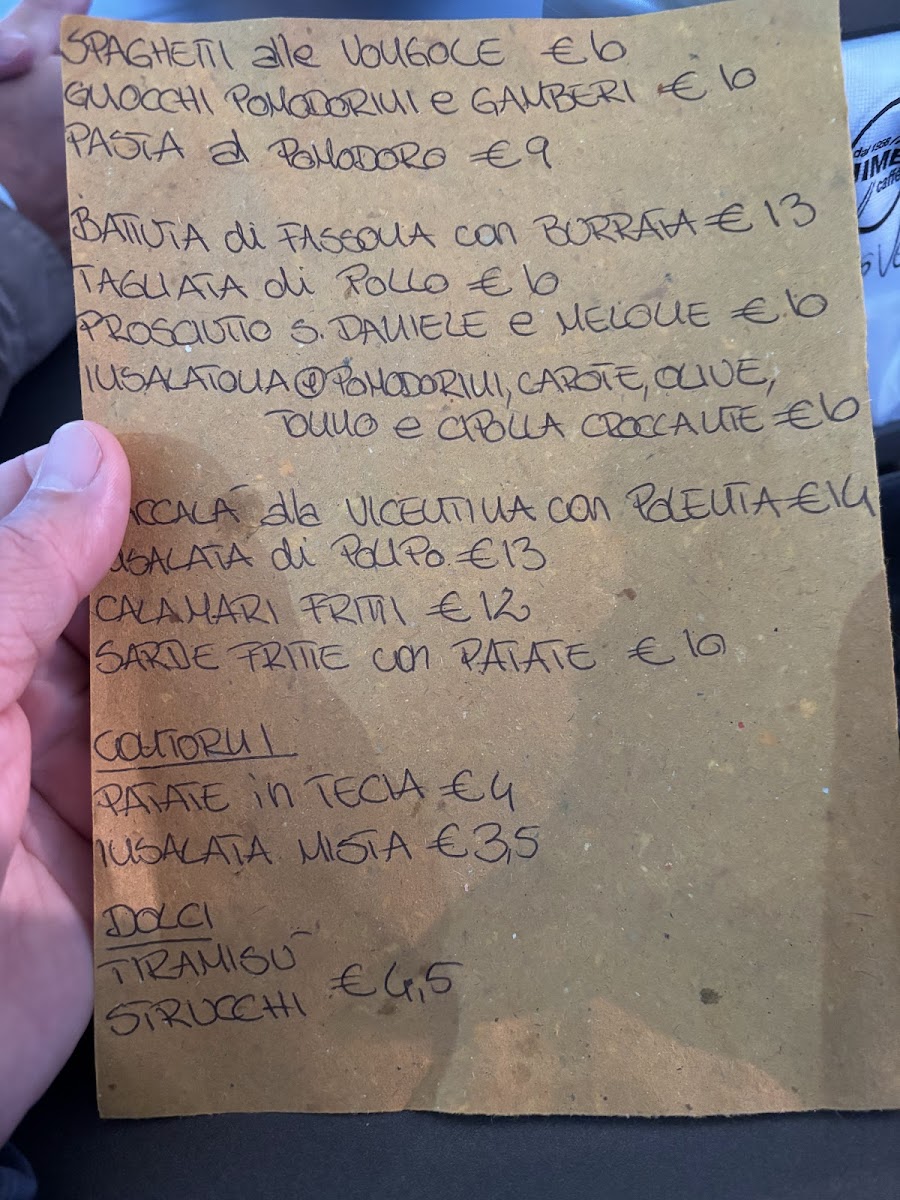 SPAGHETTI alle VONGOLE €10
GNOCCHI POMODORINI e GAMBERI € 10
PASTA al POMODORO €9
BATTUTA di FASSONA con BURRATA €13
TAGLIATA di POLLO €10
PROSCIUTTO S. DANIELE e MELONE €10
INSALATONA POMODORINI, CAROTE, OLIVE,
TONNO e CIPOLLA CROCCANTE €10
ACCALA' alla VICENTINA con POLENTA €14
NSALATA di POLIPO €13
CALAMARI FRITTI €12
SARDE FRITTE con PATATE €10
CONTORNI
PATATE in TECIA €4
INSALATA MISTA €3,5
DOLCI
TIRAMISU'
STRUCCHI €4,5
caffè